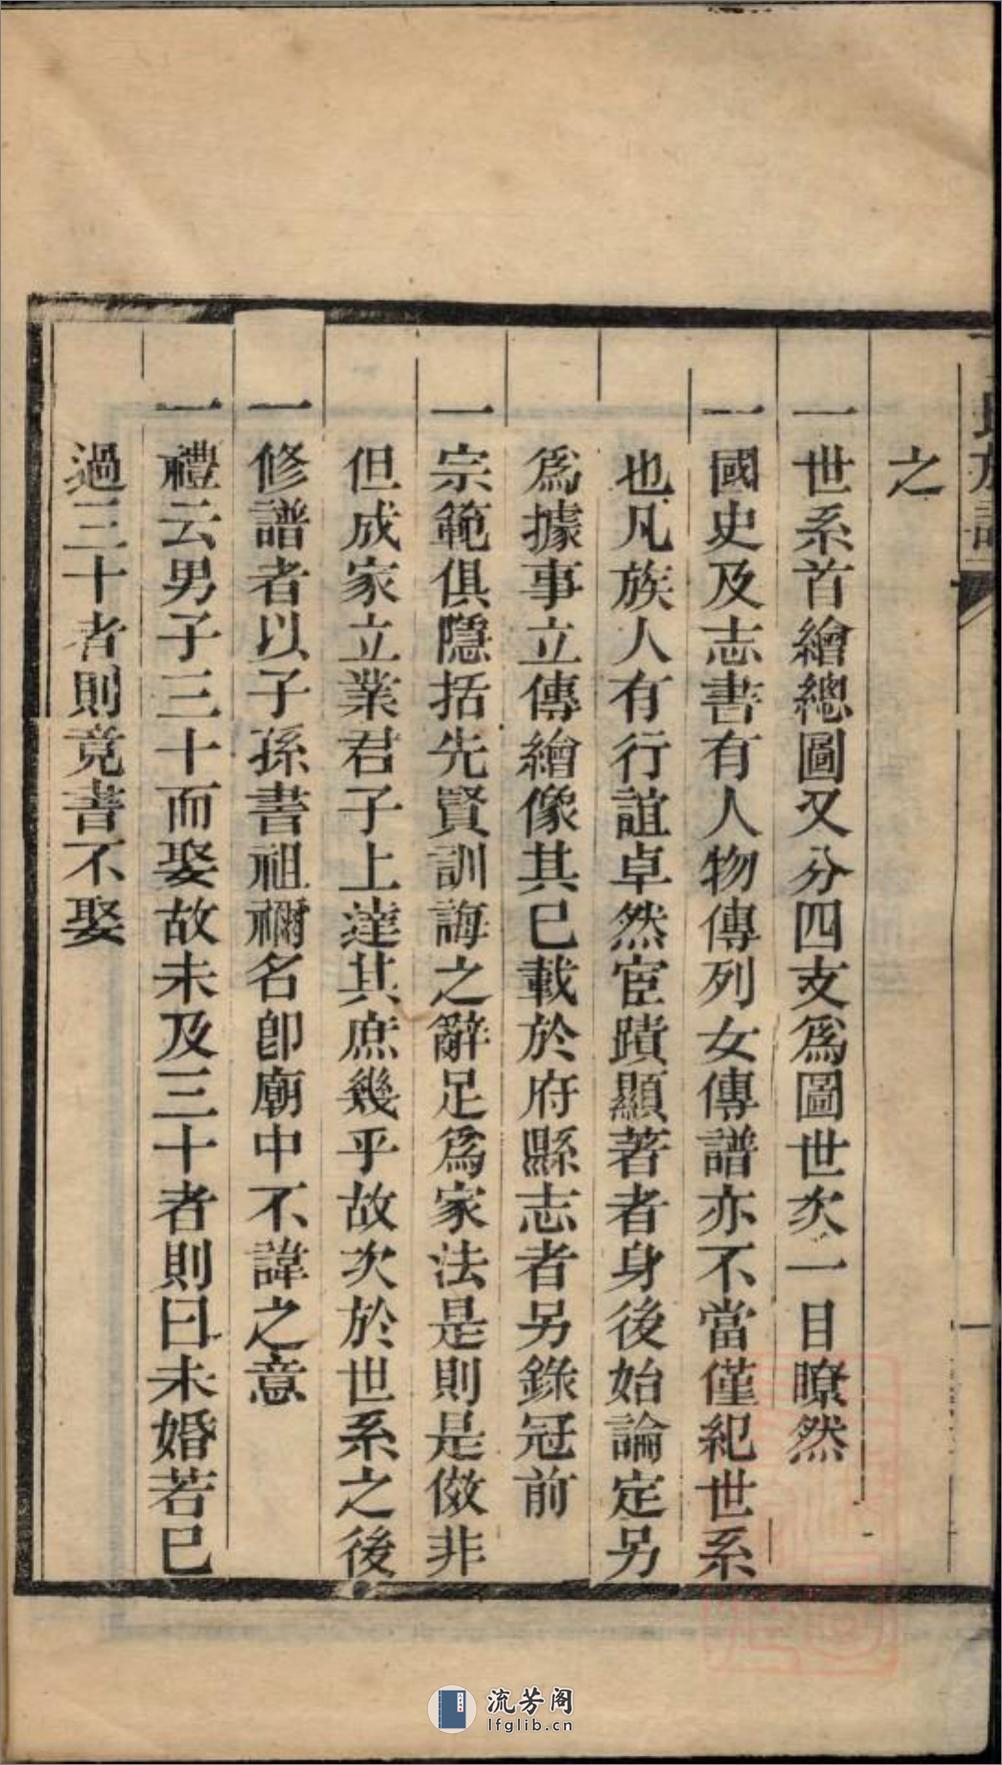 之
一世系首繪總圖又分四支爲圖世次一目瞭然
一國史及志書有人物傳列女傳譜亦不當僅紀世系
也凡族人有行誼卓然宦蹟顯著者身後始論定另
爲據事立傳繪像其已載於府縣志者另錄冠前
一宗範俱隱括先賢訓誨之辭足爲家法是則是傚非
但成家立業君子上達其庶幾乎故次於世系之後
一修譜者以子孫書祖禰名卽廟中不諱之意
一禮云男子三十而娶故未及三十者則曰未婚若已
過三十者則竟書不娶
流芳阁
lfglib.cn